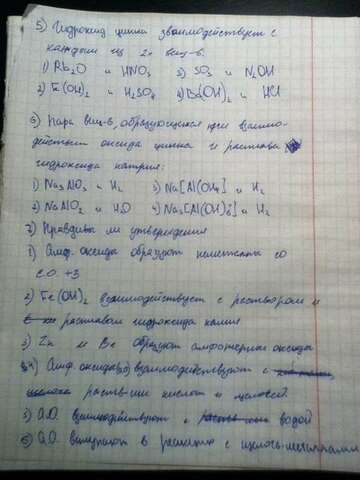 5) Гидроксид цинка взаимодействует с
каждым из 2х вещ-в.
1) Rb₂O и HNO₃ 3) SO₃ и NaOH
2) Fe(OH)₂ и H₂SO₄ 4) Ba(OH)₂ и HCl
6) Пара вещ-в, образующихся при взаимо-
действии оксида цинка и расплава
гидроксида натрия:
1) Na₃AlO₃ и H₂ 3) Na[Al(OH)₄] и H₂
2) NaAlO₂ и H₂O 4) Na₃[Al(OH)₆] и H₂
7) Правдивы ли утверждения
1) Амф. оксиды образуют неметаллы со
С.О. +3
2) Fe(OH)₂ взаимодействует с раствором и
расплавом гидроксида калия
3) Zn и Be образуют амфотерные оксиды
4) Амф. оксиды взаимодействуют с
раств-ми кислот и щелочей.
5) А.О. взаимодействуют с водой
6) А.О. вступают в реакцию с щелочь-металлами